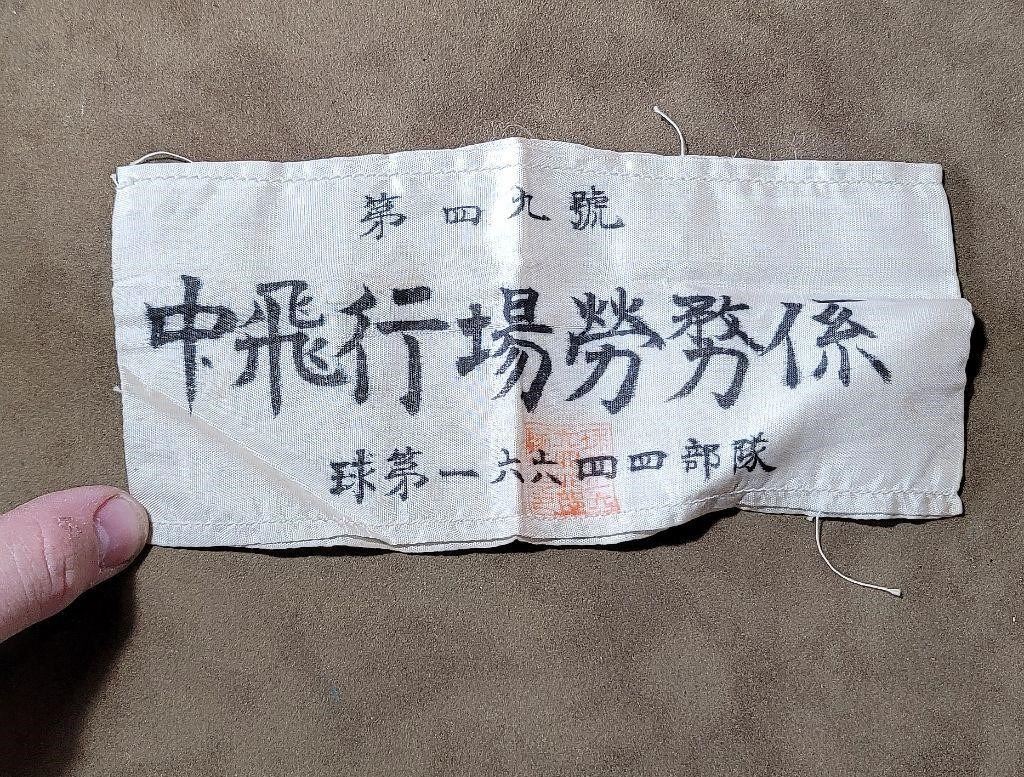 第四九號
中飛行場勞務係
球第一六六四四部隊